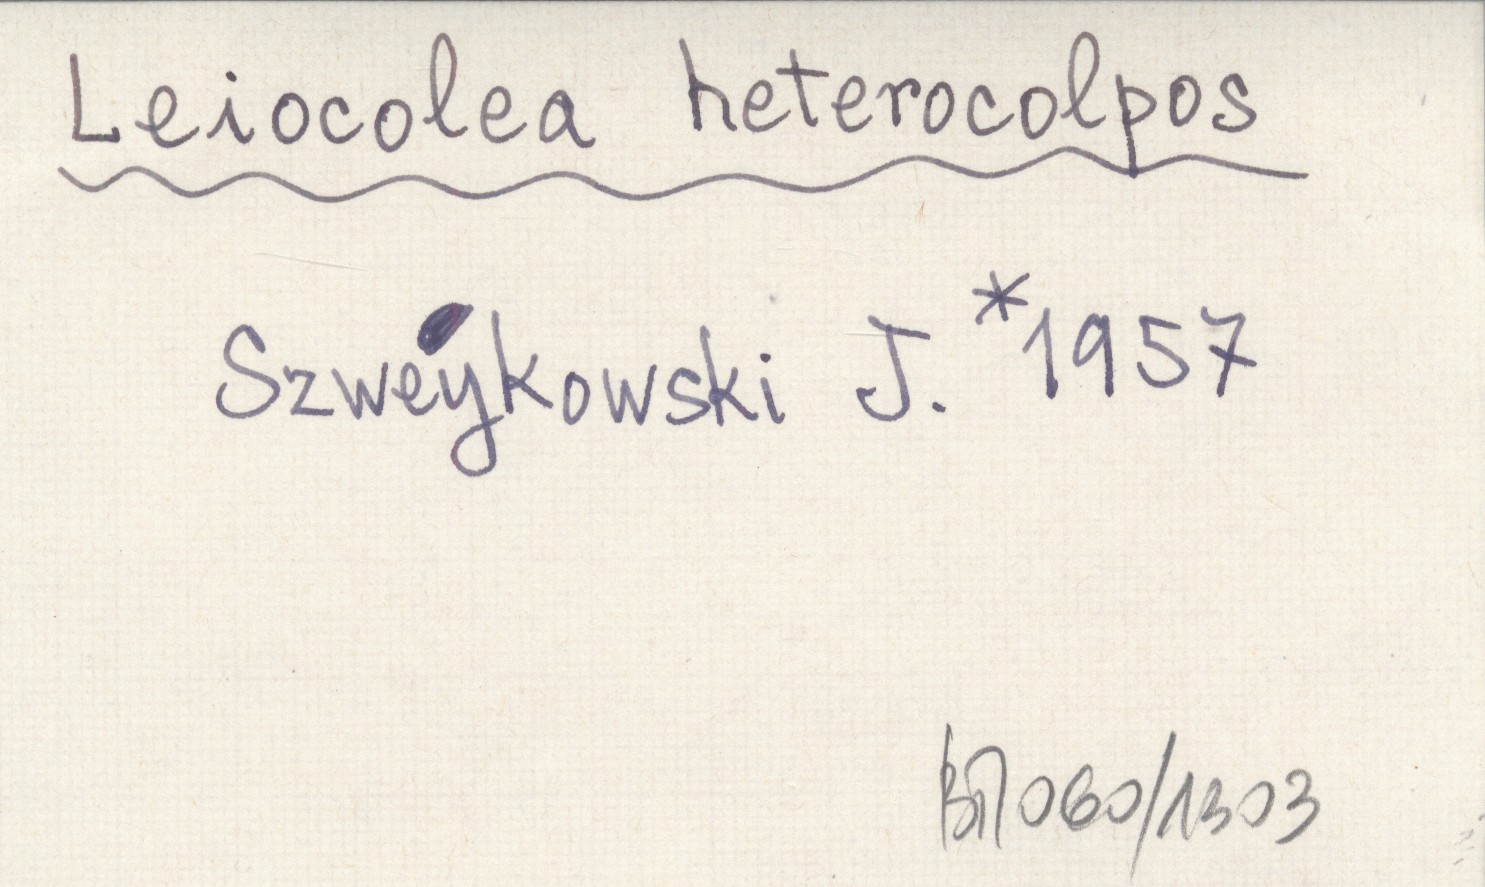 Leiocolea heterocolpos
Szweykowski J. *1957
060/1303